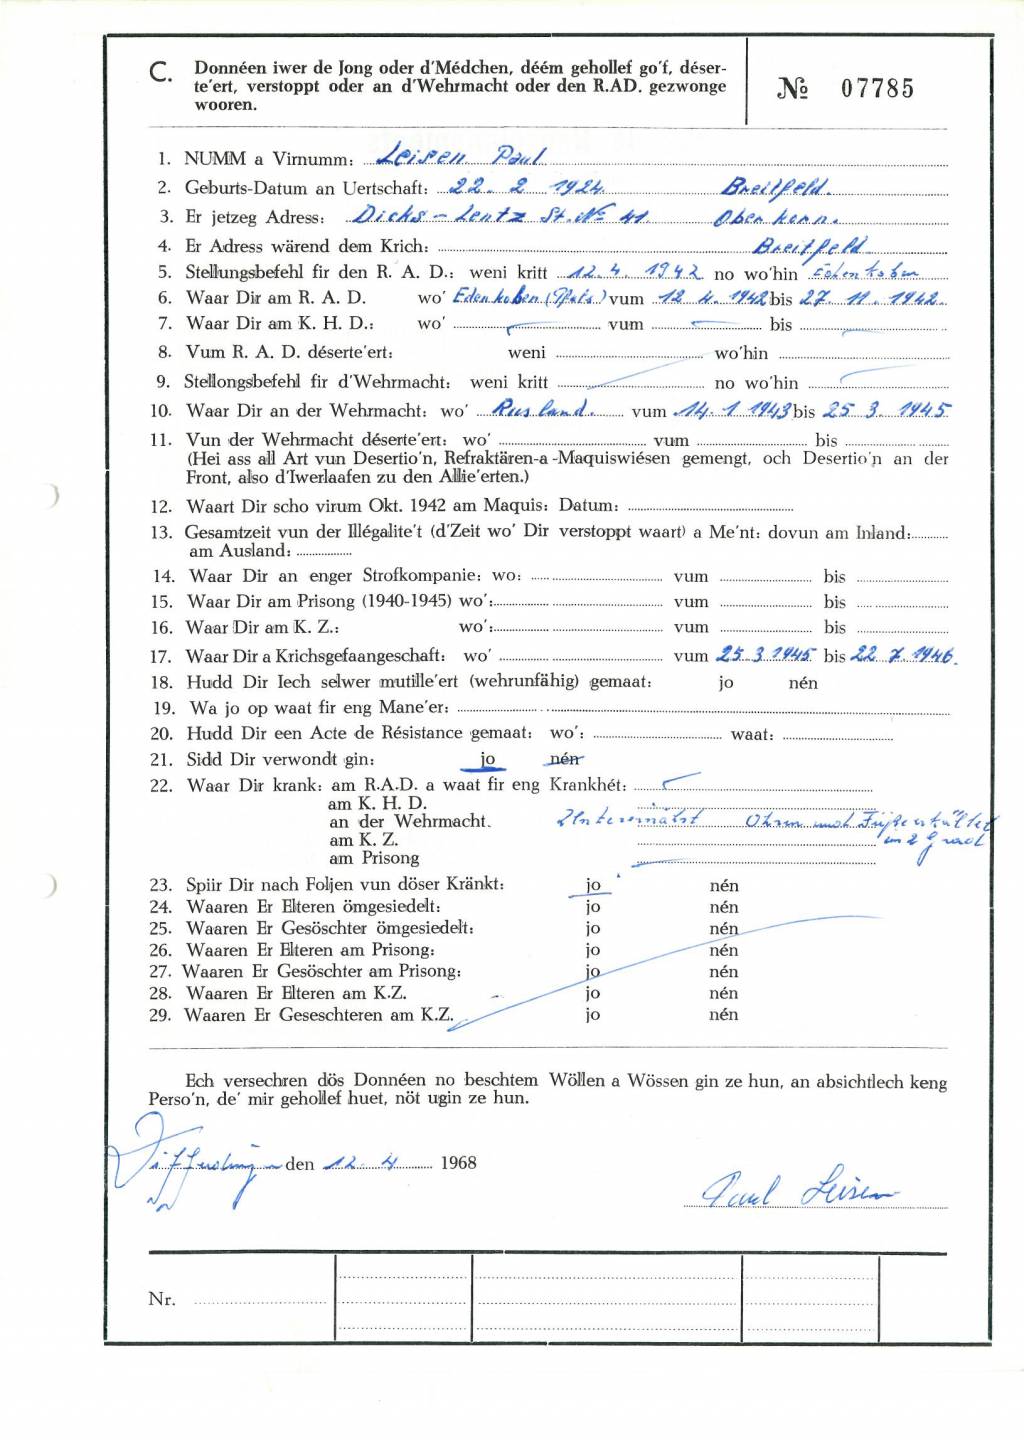 C. Donnéen iwer de Jong oder d'Médchen, déém gehollef go'f, déser-
te'ert, verstoppt oder an d'Wehrmacht oder den R.AD. gezwonge
wooren.
№ 07785
1. NUMM a Virnumm: Leisen Paul
2. Geburts-Datum an Uertschaft: 22. 2 1924. Breitfeld.
3. Er jetzeg Adress: Dicks-Lentz St. № 41. Oberkorn.
4. Er Adress wärend dem Krich: Breitfeld
5. Stellungsbefehl fir den R. A. D.: weni kritt 12.4. 1942 no wo'hin Edenkoben
6. Waar Dir am R. A. D. wo' Edenkoben (Pfalz) vum 12 4. 1942 bis 27. 11. 1942.
7. Waar Dir am K. H. D.: wo' vum bis
8. Vum R. A. D. déserte'ert: weni wo'hin
9. Stellongsbefehl fir d'Wehrmacht: weni kritt no wo'hin
10. Waar Dir an der Wehrmacht: wo' Rusland. vum 14. 1 1943 bis 25 3. 1945
11. Vun der Wehrmacht déserte'ert: wo' vum bis
(Hei ass all Art vun Desertio'n, Refraktären-a-Maquiswiésen gemengt, och Desertio'n an der
Front, also d'Iwerlaafen zu den Allie'erten.)
12. Waart Dir scho virum Okt. 1942 am Maquis: Datum:
13. Gesamtzeit vun der Illégalite't (d'Zeit wo' Dir verstoppt waart) a Me'nt: dovun am Inland:
am Ausland:
14. Waar Dir an enger Strofkompanie: wo: vum bis
15. Waar Dir am Prisong (1940-1945) wo': vum bis
16. Waar Dir am K. Z.: wo': vum bis
17. Waar Dir a Krichsgefaangeschaft: wo' vum 25 3 1945 bis 22 7. 1946.
18. Hudd Dir Iech selwer mutille'ert (wehrunfähig) gemaat: jo nén
19. Wa jo op waat fir eng Mane'er:
20. Hudd Dir een Acte de Résistance gemaat: wo': waat:
21. Sidd Dir verwondt gin: jo nén
22. Waar Dir krank: am R.A.D. a waat fir eng Krankhét:
am K. H. D.
an der Wehrmacht. Unterernährt Ohren und Füße erkältet
am K. Z. im 2 Grad
am Prisong
23. Spiir Dir nach Foljen vun döser Kränkt: jo nén
24. Waaren Er Elteren ömgesiedelt: jo nén
25. Waaren Er Gesöschter ömgesiedelt: jo nén
26. Waaren Er Elteren am Prisong: jo nén
27. Waaren Er Gesöschter am Prisong: jo nén
28. Waaren Er Elteren am K.Z. jo nén
29. Waaren Er Geseschteren am K.Z. jo nén
Ech versechren dös Donnéen no beschtem Wöllen a Wössen gin ze hun, an absichtlech keng
Perso'n, de' mir gehollef huet, nöt ugin ze hun.
Differdingen den 12 4 1968
Paul Leisen
Nr.